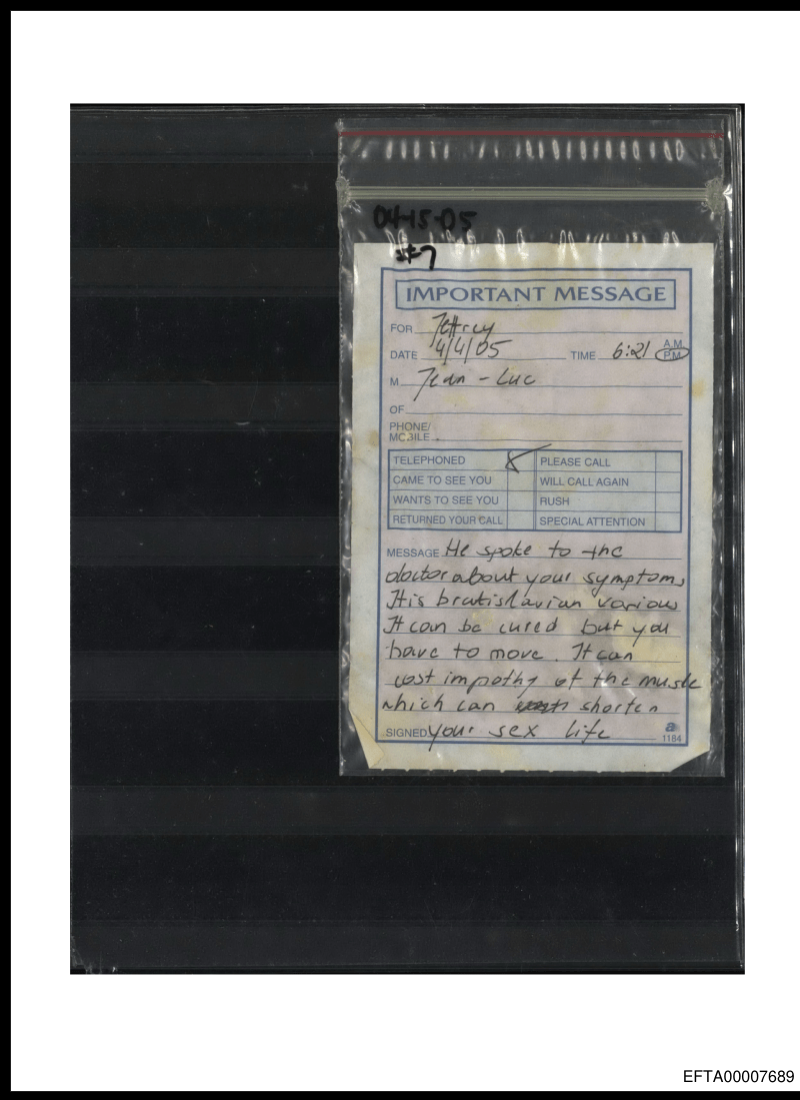 04-15-05
#7
IMPORTANT MESSAGE
FOR Jeffrey
DATE 4/4/05 TIME 6:21 A.M. P.M.
M Jean - Luc
OF
PHONE/
MOBILE
TELEPHONED PLEASE CALL
CAME TO SEE YOU WILL CALL AGAIN
WANTS TO SEE YOU RUSH
RETURNED YOUR CALL SPECIAL ATTENTION
MESSAGE He spoke to the
doctor about your symptoms
It is bratislavian various
It can be cured but you
have to move. It can
cost impothy of the muscle
which can shorten
SIGNED your sex life
a
1184
EFTA00007689